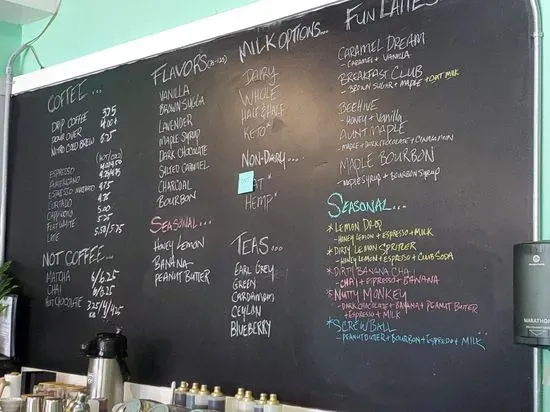 COFFEE...
DRIP COFFEE 3.75
POUR OVER 4.00+
NITRO COLD BREW 5.25
(HOT/ICED)
ESPRESSO
AMERICANO
ESPRESSO MACCHIATO 4.75
CORTADO 4.75
CAPPUCCINO 5.00
FLAT WHITE 5.25
LATTE
NOT COFFEE...
MATCHA 6/6.25
CHAI 6/6.25
HOT CHOCOLATE
FLAVORS
VANILLA
BROWN SUGGA
LAVENDER
MAPLE SYRUP
DARK CHOCOLATE
SALTED CARAMEL
CHARCOAL
BOURBON
SEASONAL...
HONEY LEMON
BANANA
PEANUT BUTTER
MILK OPTIONS...
DAIRY
WHOLE
HALF & HALF
KETO*
NON-DAIRY...
HEMP*
TEAS...
EARL GREY
GREEN
CARDAMOM
CEYLON
BLUEBERRY
FUN LATTES
CARAMEL DREAM
- CARAMEL + VANILLA
BREAKFAST CLUB
- BROWN SUGAR + MAPLE + OAT MILK
BEEHIVE
- HONEY + VANILLA
AUNT MAPLE
- MAPLE + DARK CHOCOLATE + CINNAMON
MAPLE BOURBON
- MAPLE SYRUP + BOURBON SYRUP
SEASONAL...
*LEMON DROP
- HONEY LEMON + ESPRESSO + MILK
*DIRTY LEMON SPRITZER
- HONEY LEMON + ESPRESSO + CLUB SODA
*DIRTY BANANA CHAI
- CHAI + ESPRESSO + BANANA
*NUTTY MONKEY
- DARK CHOCOLATE + BANANA + PEANUT BUTTER
+ ESPRESSO + MILK
*SCREWBALL
- PEANUT BUTTER + BOURBON + ESPRESSO + MILK
MARATHON